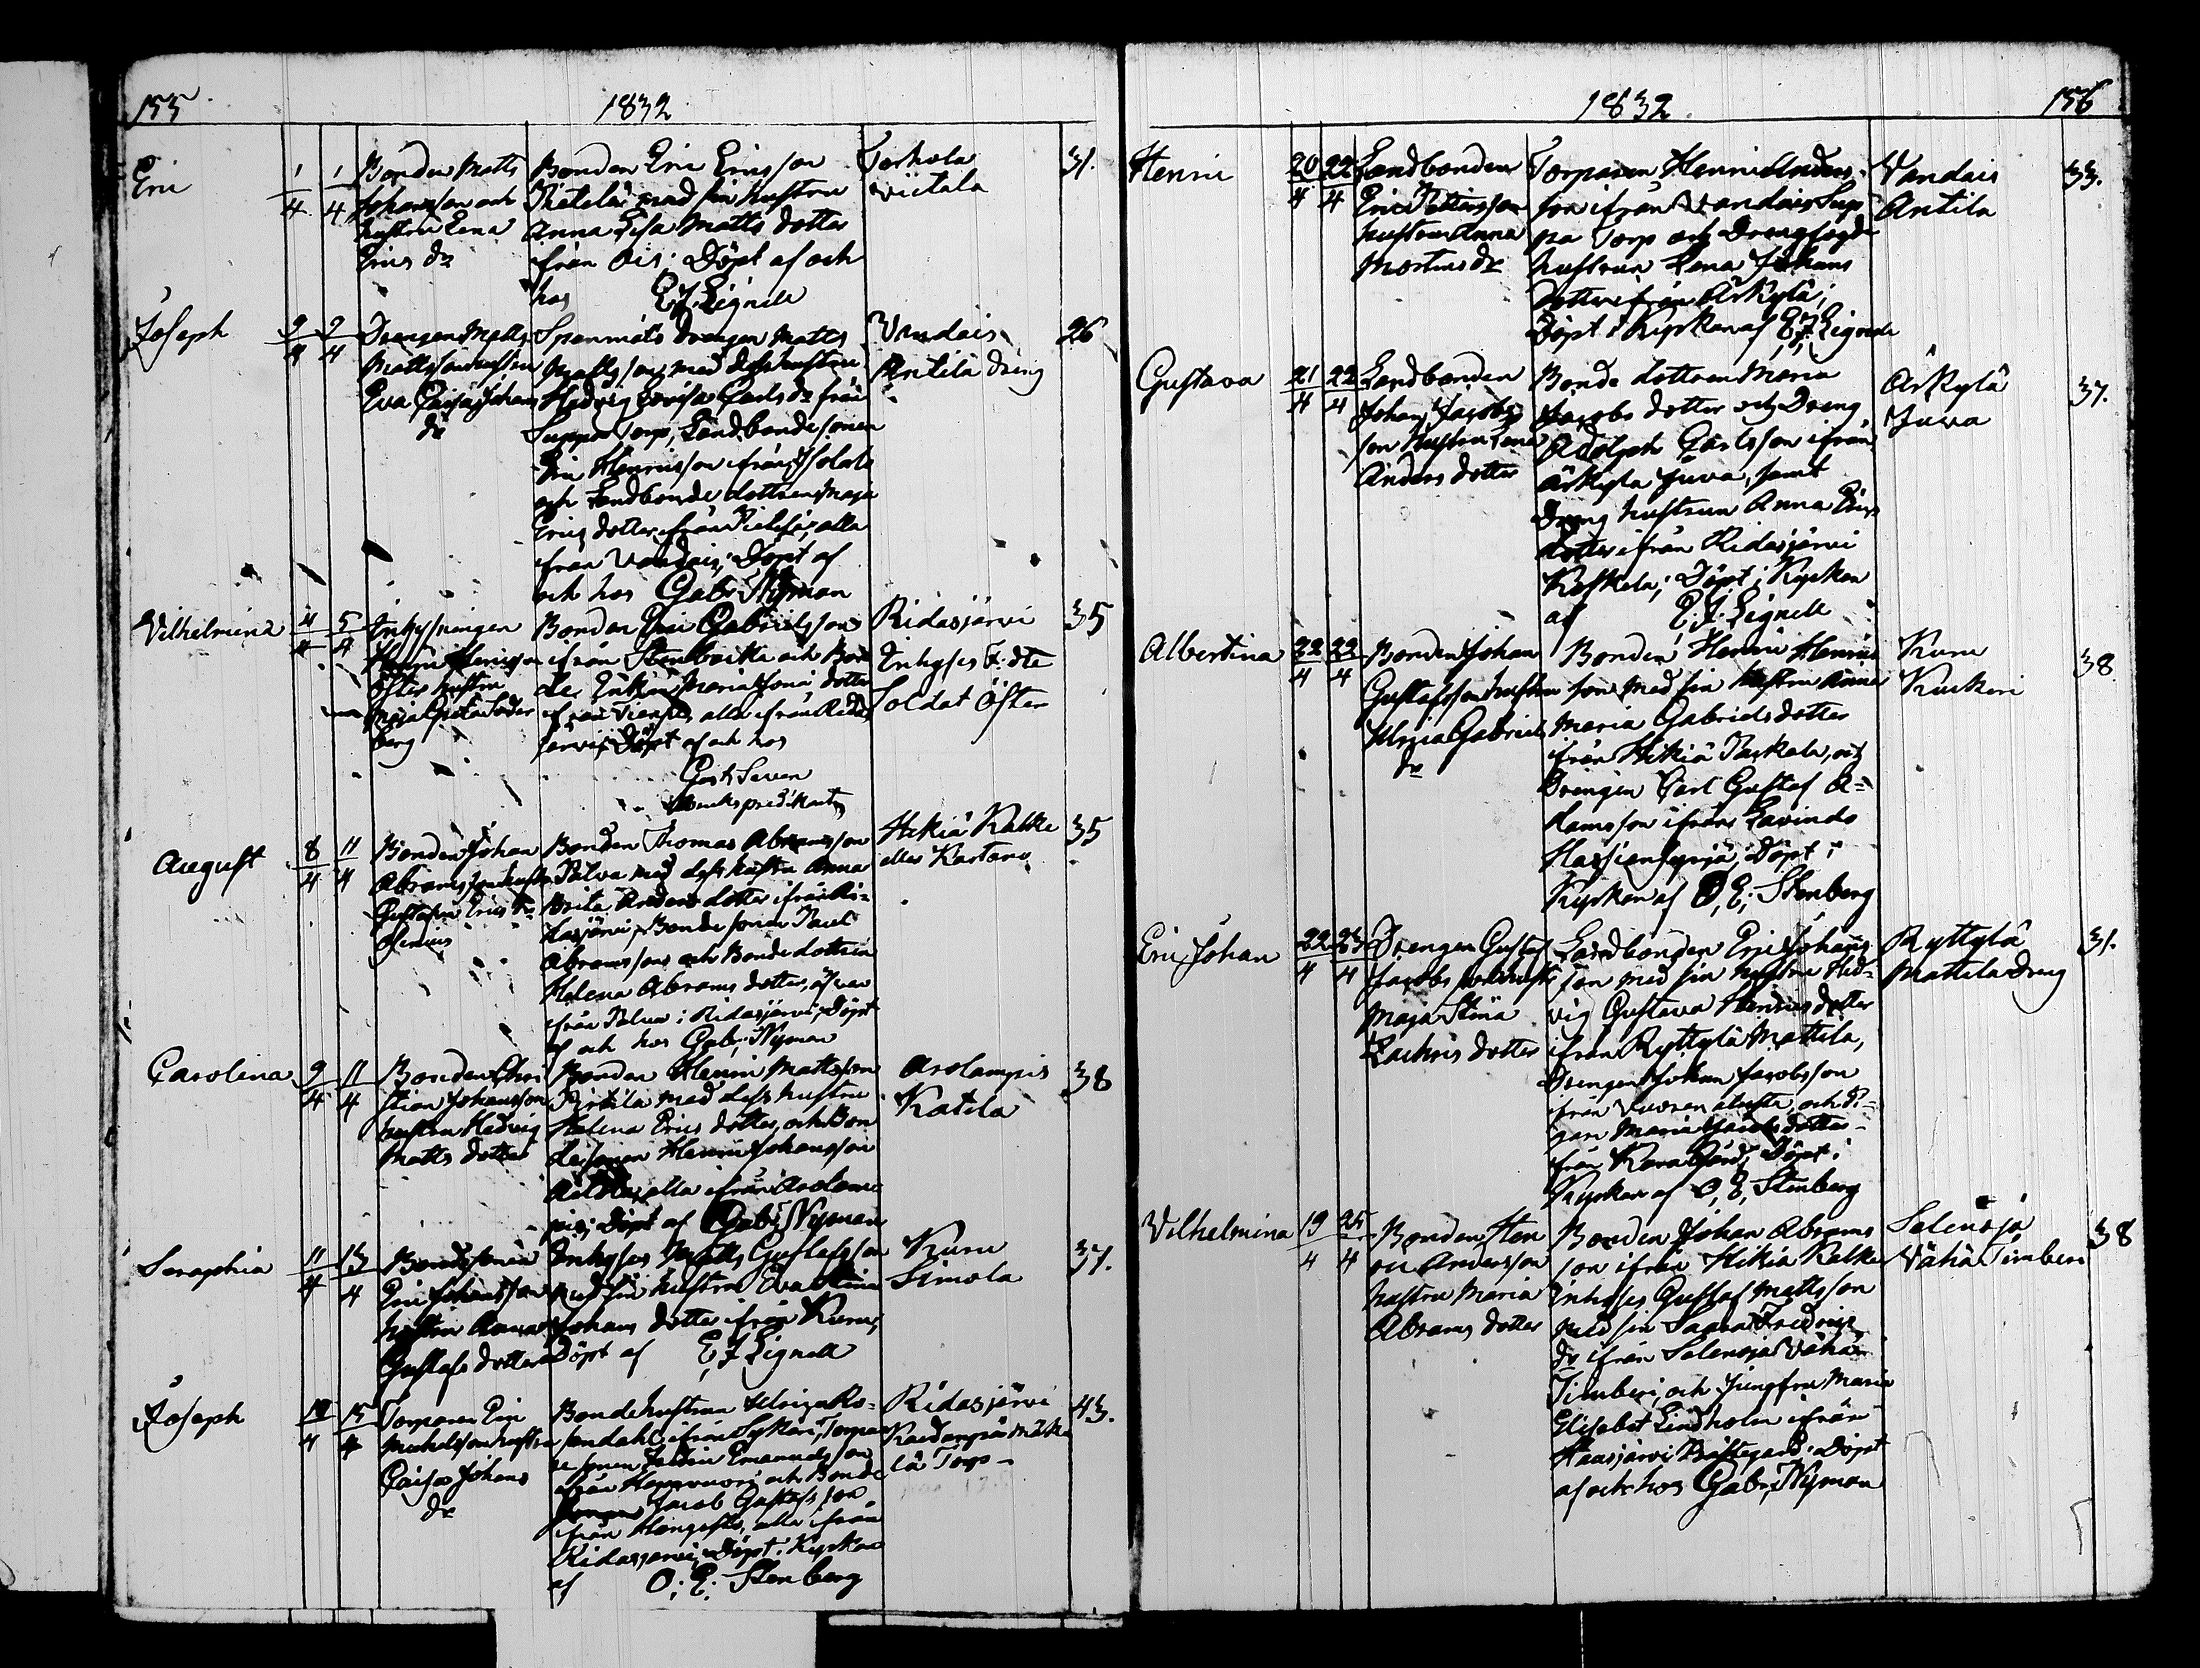 155
1832
Eric
1/4
1/4
Bonden Matts
Johansson och
hustru Lena
Erics dr
Bonden Eric Ericsson
med sin hustru
Anna Lisa Matts dotter
från Ois; Döpt af och
hos E J Lignell
Torhola
Wiitala
31.
Joseph
2/4
2/4
Drengen Matts
Mattsson hustru
Eva Caisa Johans
dr
Spanmåts drengen Matts
Mattsson med dess hustru
Hedvig Lovisa Carls dr från
Suppa Torp, Landbondesonen
Eric Henricsson ifrån Isotalo
och Landbonde dottren Maja
Erics dotter ifrån alla
från Vandais; Döpt af
och hos Gabr. Nyman
Vandais
Antila dreng
26
Vilhelmina
4/4
5/4
Inhysningen
Henric Henricsson
Öster hustru
Maja Greta Söder
berg
Bonden Eric Gabrielsson
ifrån Stenbacka och Bon
de Enkan Maria dotter
ifrån alla ifrån Rida
järvi; Döpt af och hos
Gust. Seven
Bruks predikant
Ridasjärvi
Inhyses F: dte
Soldat Öster
35
August
8/4
11/4
Bonden Johan
Abramsson hustru
Gustafva Erics dr
Bonden Thomas Abramsson
Palva med dess hustru Anna
Brita Anders dotter ifrån Ri=
dasjärvi, Bonde sonen Paul
Abramsson och Bonde dottren
Helena Abrams dotter,
från Palva i Ridasjärvi; Döpt
af och hos Gabr; Nyman
Hikiä Kalke
eller Kartano
35
Carolina
9/4
11/4
Bonden Chri
stian Johansson
hustru Hedvig
Matts dotter
Bonden Henric Mattsson
Pirtila med dess hustru
Helena Erics dotter, och Bon
desonen Henric Johansson
alla ifrån Arolam
pis; Döpt af Gabr; Nyman
Arolampis
Katila
38
Seraphia
11/4
13/4
Bondesonen
Eric Johansson
hustru Anna
Gustafs dotter
Inhyses Matts Gustafsson
med sin hustru Eva Stina
Johans dotter ifrån Kuru;
Döpt af E J Lignell
Kuru
Simola
37.
Joseph
15/4
Torparen Eric
Michelsson hustru
Caisa Johans
dr
Bondehustrun Ulrica Ro=
sendahl ifrån Torpa
re sonen Emanuelsson
från och Bonde
sonen Jacob Gustafsson
ifrån alla ifrån
Ridasjärvi; Döpt i Kyrkan
af O; E; Stenberg
Ridasjärvi
Mäke
lä Torp
43.
1832.
156
Henric
20/4
22/4
Landbonden
Eric Pettersson
hustru Anna
Mortens dr
Torparen Henric Anders
son ifrån Vandais Sup
pa Torp och Drengsogde
hustrun Lena Johans
dotter ifrån Arkylä;
Döpt i Kyrkan af E; J; Lignell
Vandais
Antila
33.
Gustava
21/4
22/4
Landbonden
Johan Jacobs
son hustru Lena
Anders dotter
Bonde dottren Maria
Jacobs dotter och Dreng
Adolph Carlsson ifrån
Arkylä Juva, samt
dreng hustrun Anna Erics
dotter ifrån Ridasjärvi
Keskela; Döpt i Kyrkan
af E. J. Lignell
Arkylä
Juva
37.
Albertina
22/4
22/4
Bonden Johan
Gustafsson hustru
Ulrica Gabriels
dr
Bonden Henric Henrics
son med sin hustru Anna
Maria Gabriels dotter
ifrån Hikiä och
Drengen Carl Gustaf A=
damsson ifrån Lavinda
Döpt i
Kyrkan af O. E; Stenberg
Kuru
Kuckeri
38
Eric Johan
22/4
23/4
Drengen Gustaf
Jacobsson hustru
Maja Stina
Zachris dotter
Landbonden Eric Johans
son med sin hustru Hed=
vig Gustava Henrics dotter
ifrån Ryttylä Mattila,
Drengen Johan Jacobsson
ifrån och Pi=
gan Maria Jacobs dotter
från Kara Gård; Döpt i
Kyrkan af O, E, Stenberg
Ryttylä
Mattila dreng
31.
Vilhelmina
19/4
25/4
Bonden Sten
Andersson
hustru Maria
Abrams dotter
Bonden Johan Abrams
son ifrån Hikiä Kalke
Inhyses Gustaf Mattsson
med sin Saara Fredrics
dr ifrån Selensjä Vähä
Timberi, och Jungfru Maria
Elisabet Lindholm ifrån
Hausjärvi Prästegård: Döpt
af och hos Gabr; Nyman
Selensjä
Vähä Timberi
38